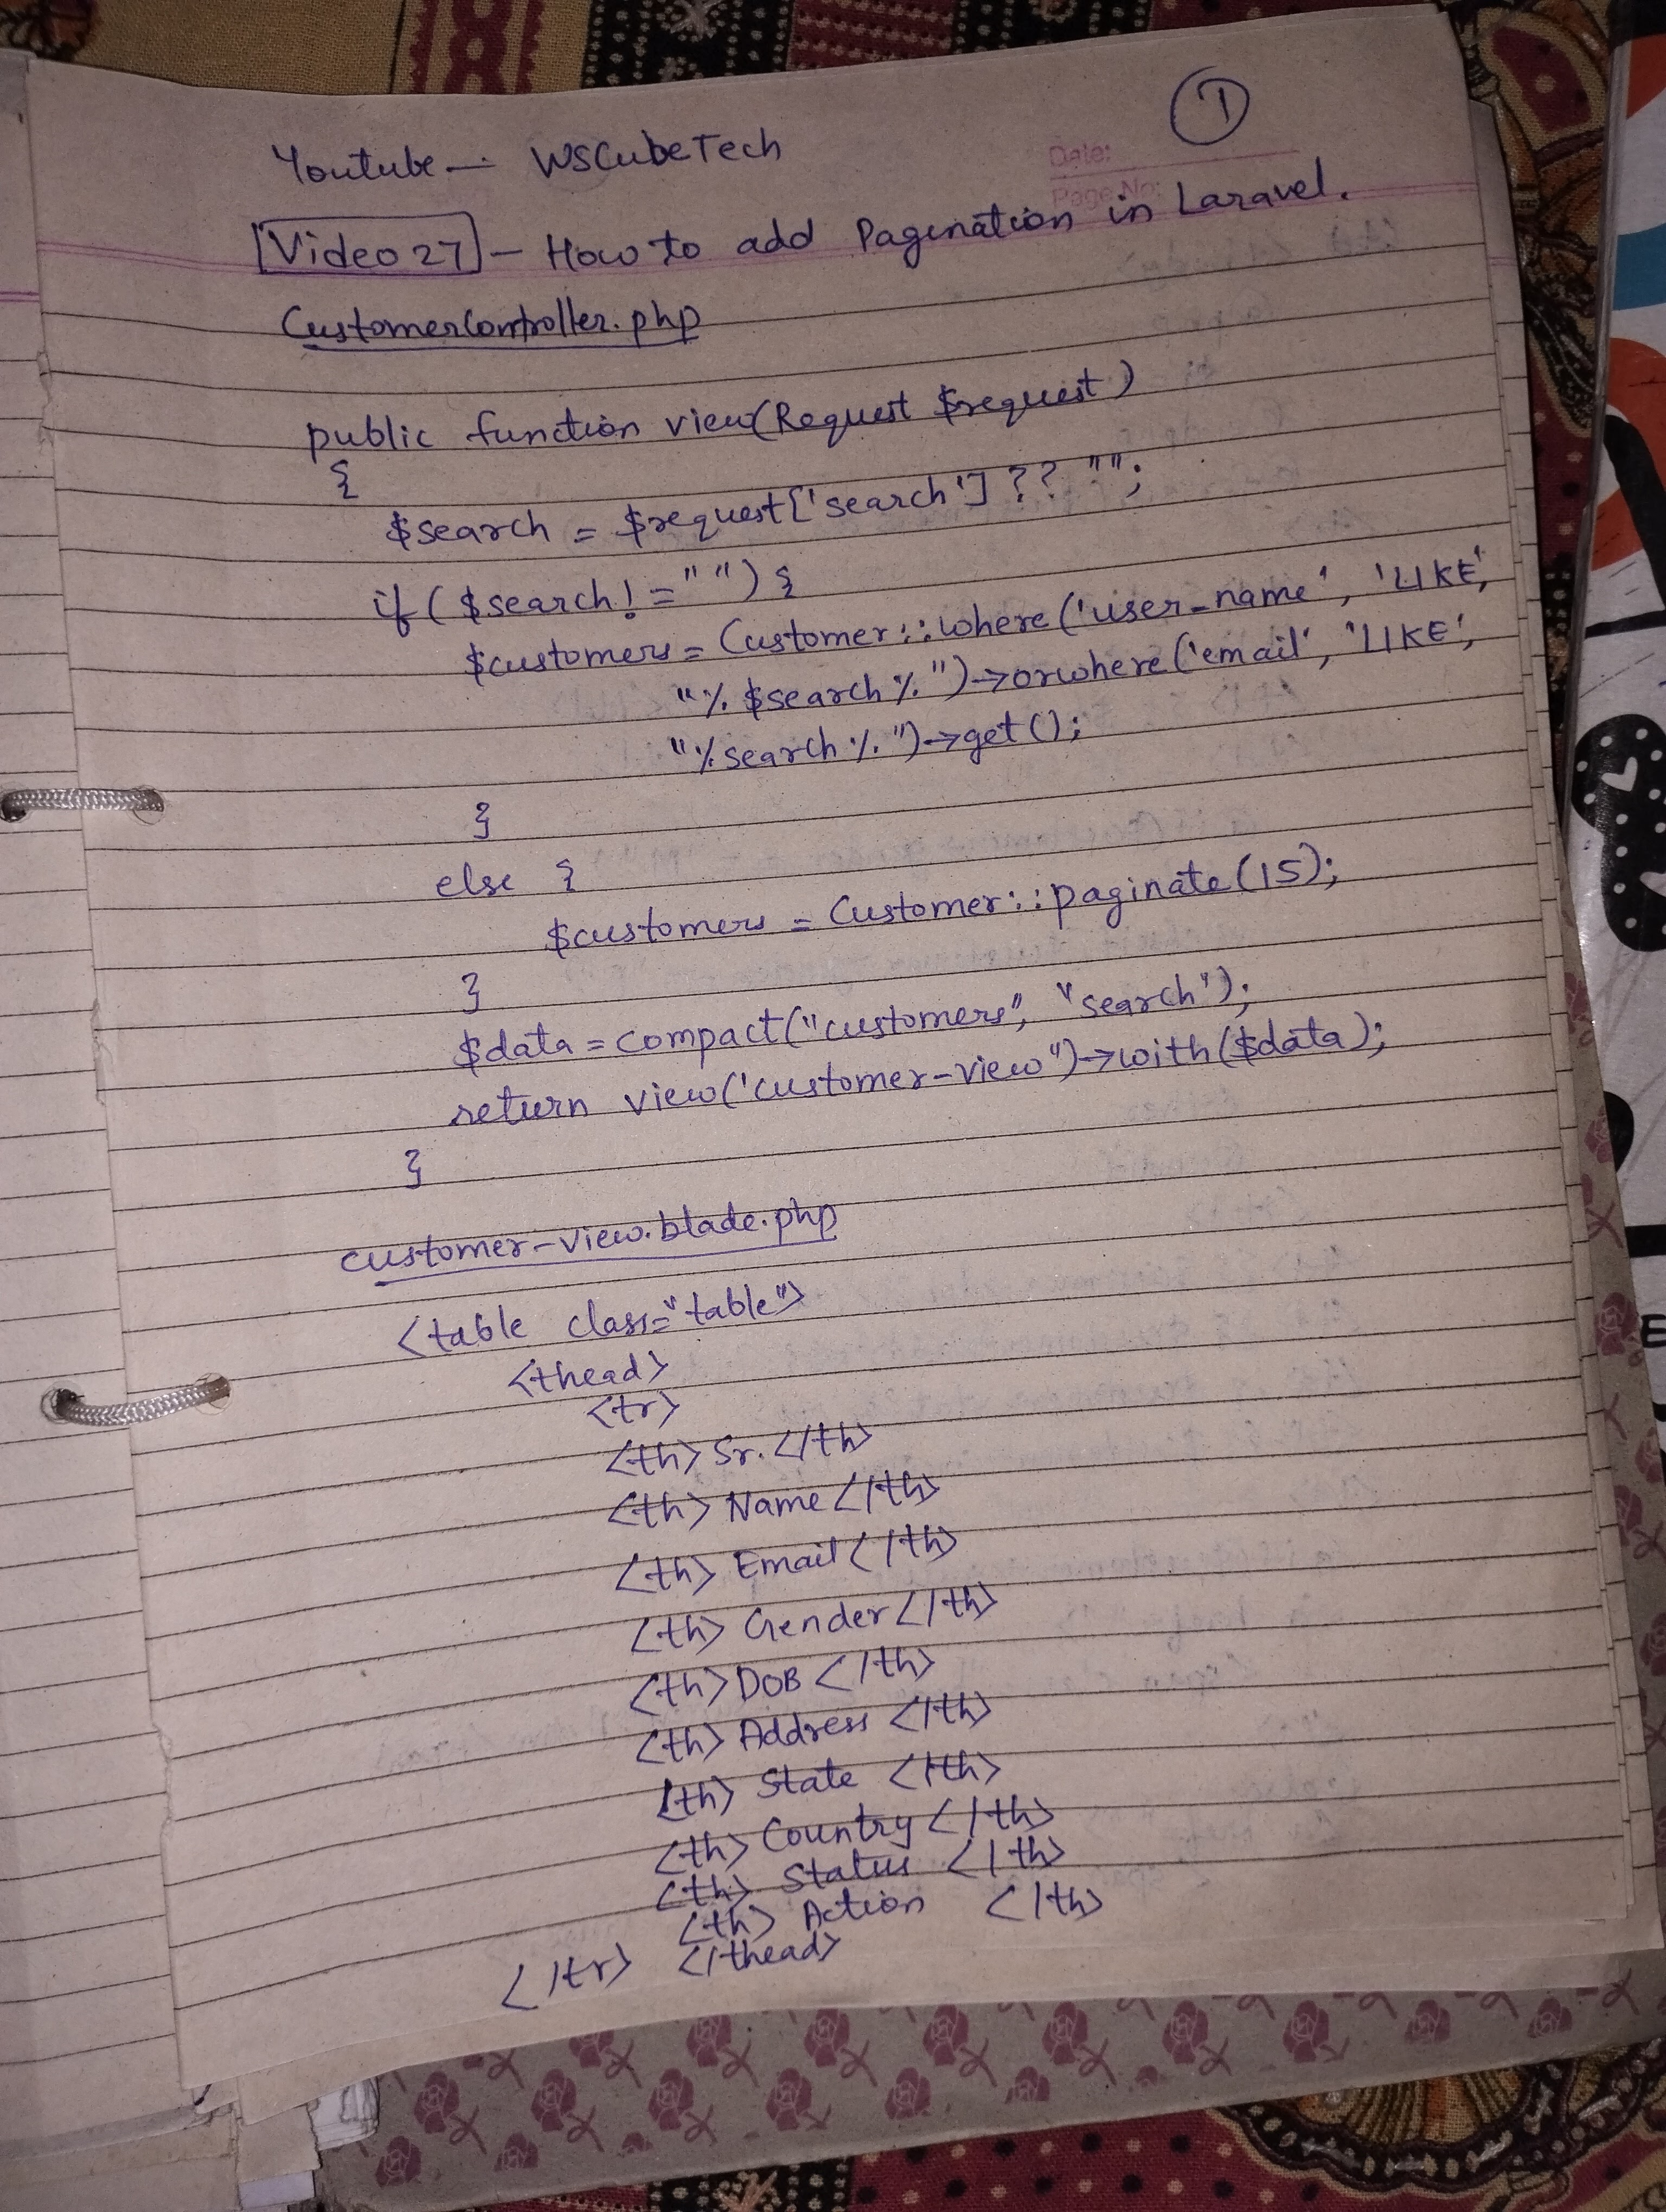 ①
Youtube — WSCubeTech
Date:
Page No:
Video 27 - How to add Pagination in Laravel.
CustomerController.php
public function view(Request $request)
{
$search = $request['search'] ?? "";
if ($search != "") {
$customers = Customer::where('user_name', 'LIKE',
"%$search%")->orwhere('email', 'LIKE',
"%search%")->get();
}
else {
$customers = Customer::paginate(15);
}
$data = compact("customers", "search");
return view('customer-view")->with($data);
}
customer-view.blade.php
<table class="table">
<thead>
<tr>
<th> Sr. </th>
<th> Name </th>
<th> Email </th>
<th> Gender </th>
<th> DOB </th>
<th> Address </th>
<th> State </th>
<th> Country </th>
<th> Status </th>
<th> Action </th>
</tr> </thead>